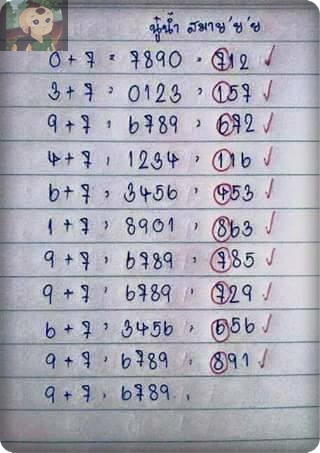 นู๋น้ำ สมาย'ย'ย
0 + 7 = 7890 = 712 ✓
3 + 7 , 0123 , 157 ✓
9 + 7 , 6789 , 672 ✓
4 + 7 , 1234 , 116 ✓
6 + 7 , 3456 , 453 ✓
1 + 7 , 8901 , 863 ✓
9 + 7 , 6789 , 785 ✓
9 + 7 , 6789 , 729 ✓
6 + 7 , 3456 , 656 ✓
9 + 7 , 6789 , 891 ✓
9 + 7 , 6789 ,